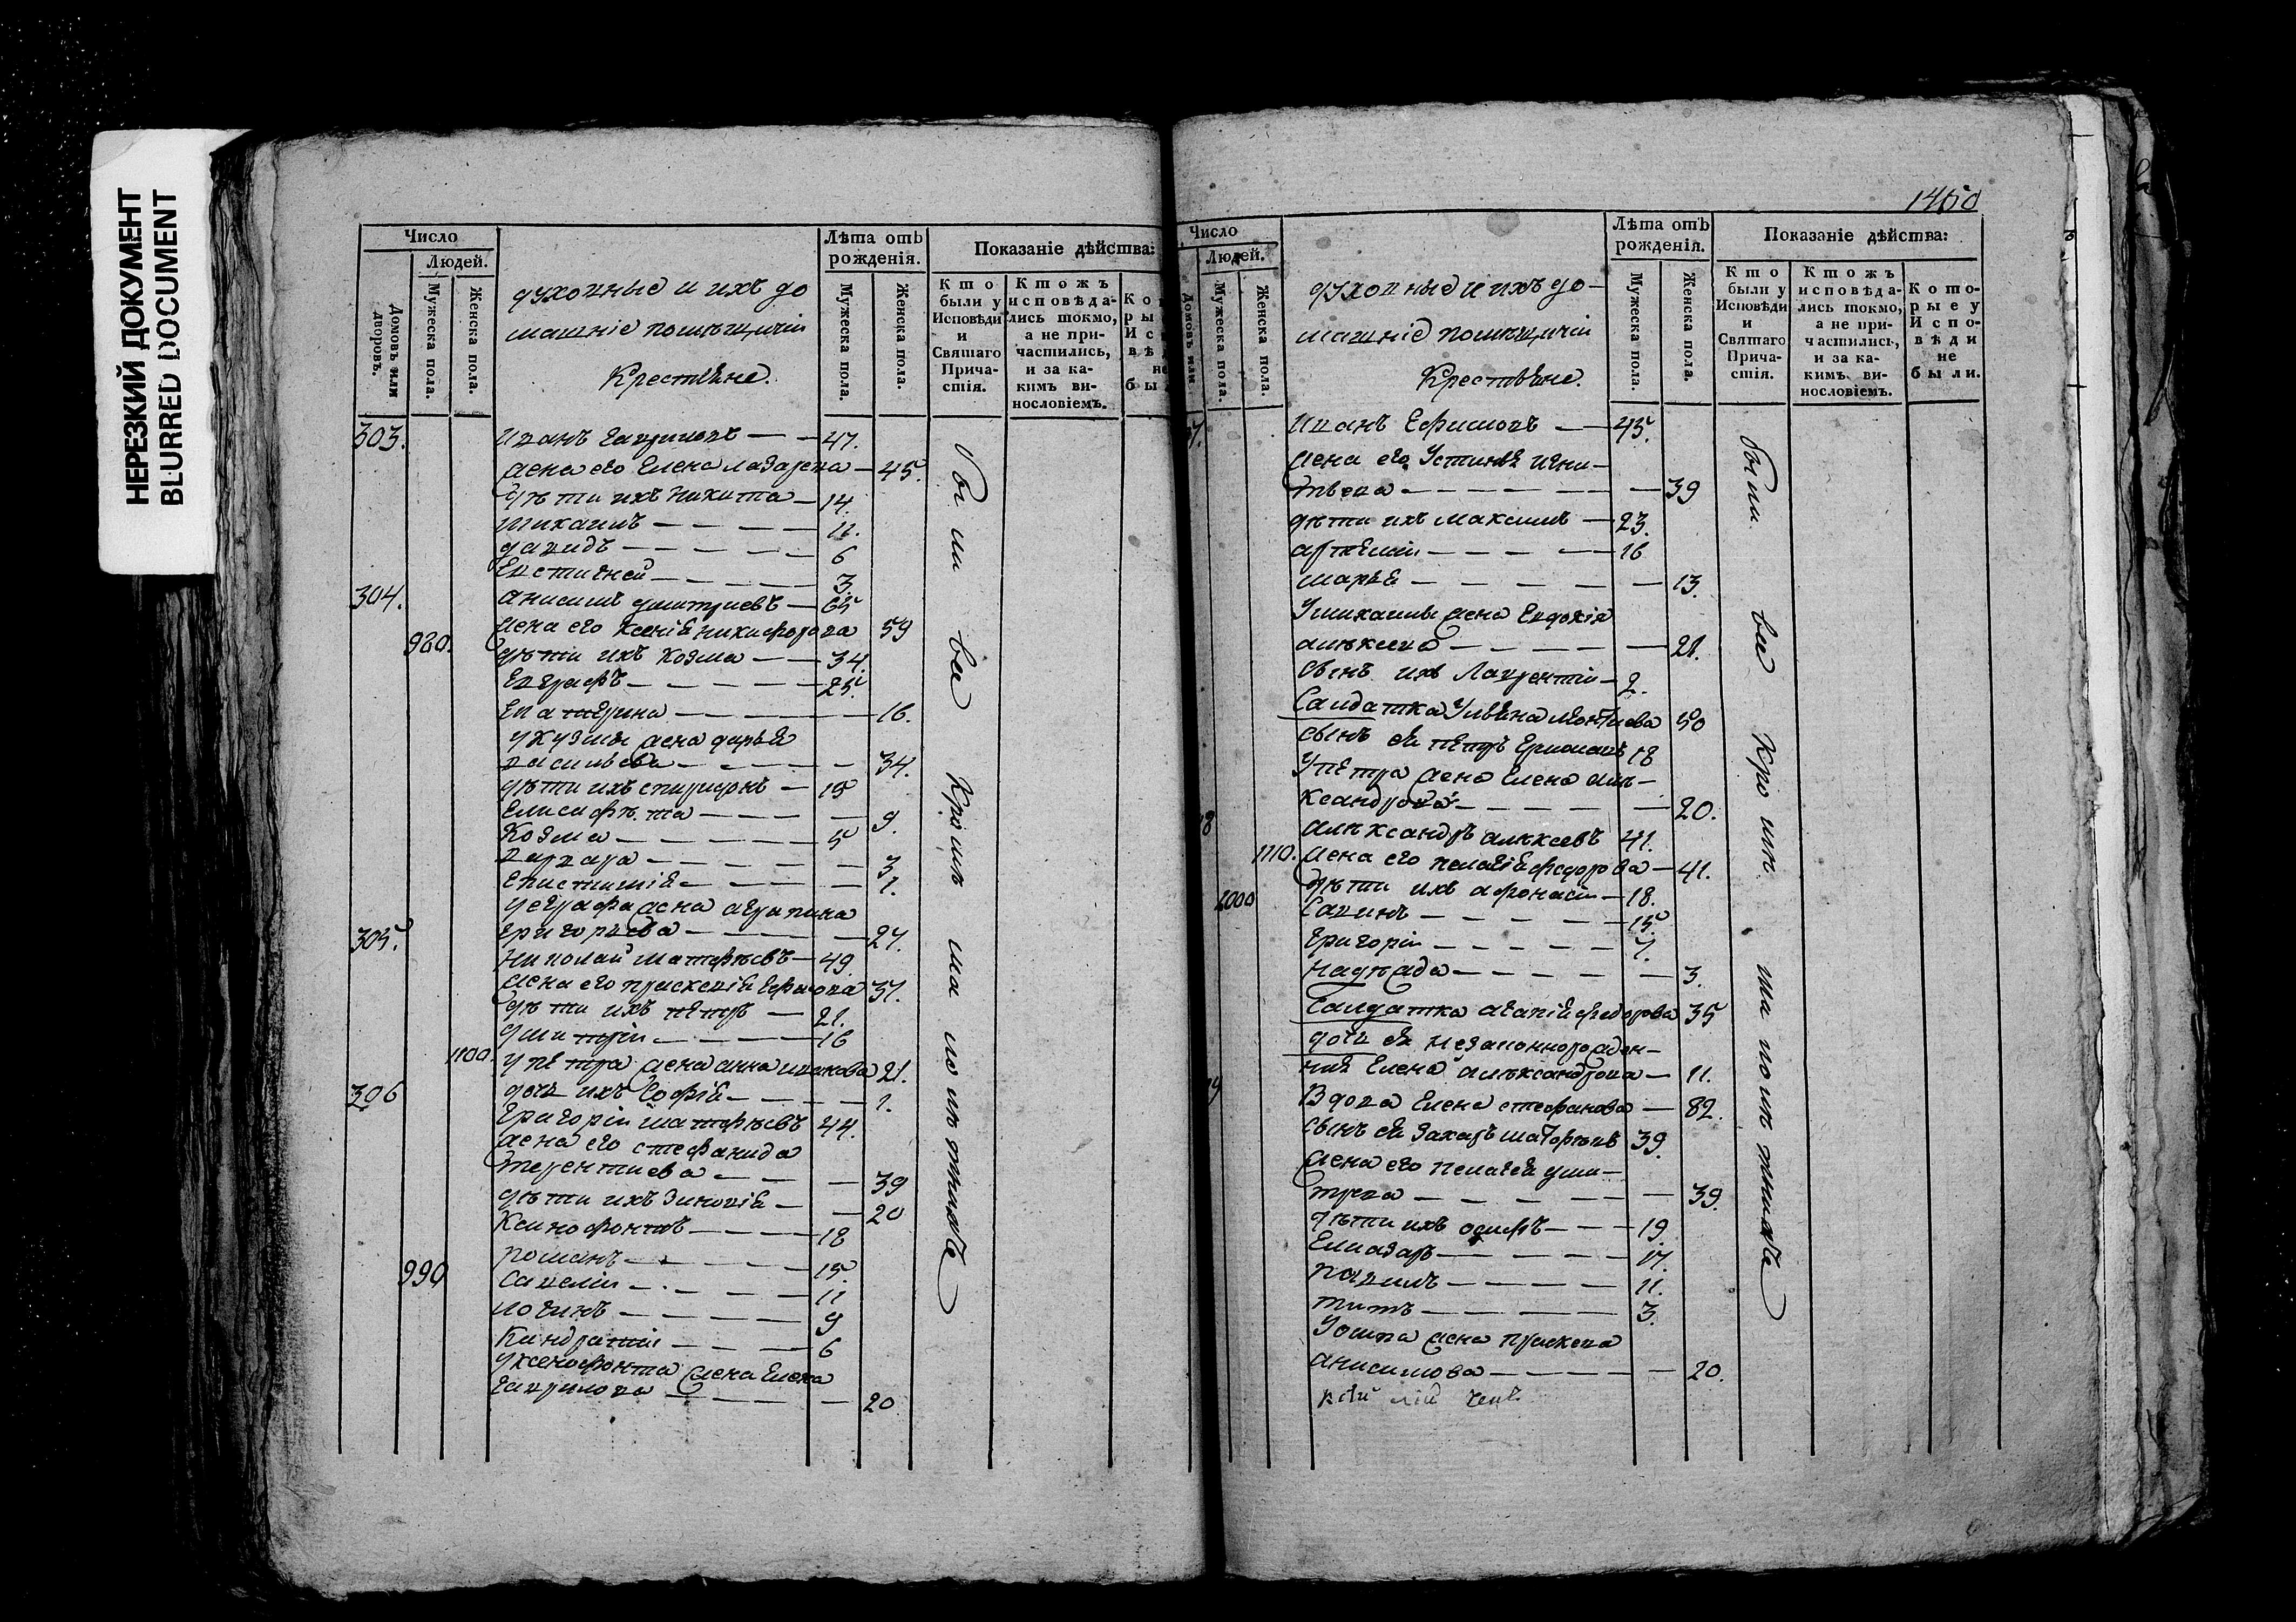 НЕРЕЗКИЙ ДОКУМЕНТ
BLURRED DOCUMENT
Число
Людей.
Домовъ или дворовъ.
Мужеска пола.
Женска пола.
духовные и ихъ до
машніе помѣщичіи
Крестьяне.
Лѣта отъ рожденія.
Мужеска пола.
Женска пола.
Показаніе дѣйства:
Кто были у Исповѣди и Святаго Причастія.
Ктожъ исповѣдались токмо, а не причастились, и за какимъ винословіемъ.
303. Иванъ Гавриловъ 47.
жена его Елена Лазарева 45.
дѣти ихъ Никита 14.
11.
давидъ 6
Евстигней 3.
304. анисимъ дмитріевъ 65
980. жена его Ксенія никифорова 59
дѣти ихъ Козма 34.
Евграфъ 25.
Екатерина 16.
у кузмы жена дарья
васильева 34.
дѣти ихъ спиридонъ 15
Елисафѣта 9.
Козма 5
варвара 3
Епистимія 1.
у еграфа жена аграпина
305. григорьева 27.
Николай матфѣевъ 49.
жена его прасковія Ефимова 37.
дѣти ихъ петръ 21.
дмитрій 16
1100. у петра жена анна 21.
306 дочь ихъ Софія 1.
Григорій матфѣевъ 44.
жена его стефанида
терентиева 39
дѣти ихъ Зиновія 20
Ксинофонтъ 18
романъ 15.
990 Савелій 11
логинъ 9
Кандратій 6
у ксенофонта жена Елена
Гаврилова 20
были все Кромѣ малолѣтныхъ
1460
Число
Людей.
Домовъ или
Мужеска пола.
Женска пола.
духовные и ихъ до-
машніе помѣщичіи
Крестьяне.
Лѣта отъ рожденія.
Мужеска пола.
Женска пола.
Показаніе дѣйства:
Кто были у Исповѣди и Святаго Причастія.
Ктожъ исповѣдались токмо, а не причастились, и за какимъ винословіемъ.
Которые у Исповѣди не были.
7. Иванъ Ефимовъ 45.
жена его Устинья игна-
тьева 39
дѣти ихъ максимъ 23.
артемій 16
марья 13.
жена Евдокія
алѣксеева 21.
сынъ ихъ Лаврентій 2.
Салдатка Ульяна леонтиева 50
сынъ ея петръ 18
У петра жена Елена алѣ-
ксандрова 20.
8 алѣксандръ алѣксеевъ 41.
1110. жена его пелагія федорова 41.
1000 дѣти ихъ афонасій 18.
Савинъ 15.
Григорій 7.
надѣжда 3.
Салдатка агапія федорова 35
дочь ея незаконнорожден-
ная Елена алѣксандрова 11.
9 Вдова Елена стефанова 82.
сынъ ея Захаръ матфѣевъ 39.
жена его пелагея дми-
трева 39.
дѣти ихъ осифъ 19.
Елиазаръ 17.
11.
титъ 3.
У осипа жена
анисимова 20.
были все Кромѣ малолѣтныхъ